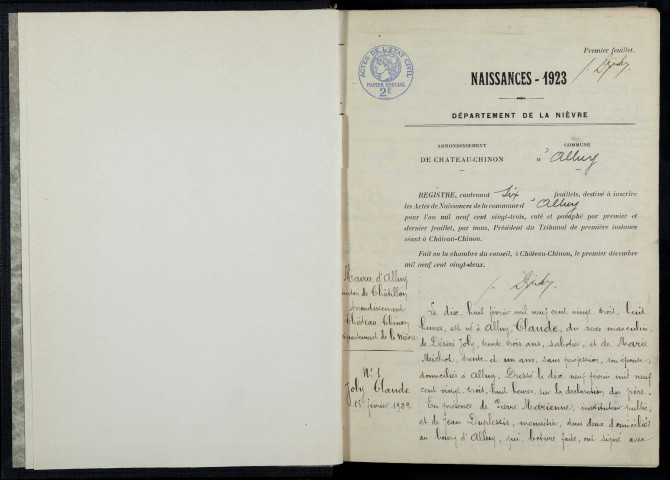 Premier feuillet.
ACTES DE L'ETAT CIVIL
PAPIER SPECIAL
2F
NAISSANCES - 1923
DÉPARTEMENT DE LA NIÈVRE
ARRONDISSEMENT
COMMUNE
DE CHATEAU-CHINON
d'Alluy
REGISTRE, contenant Six feuillets, destiné à inscrire
les Actes de Naissances de la commune d'Alluy
pour l'an mil neuf cent vingt-trois, coté et paraphé par premier et
dernier feuillet, par nous, Président du Tribunal de première instance
séant à Château-Chinon.
Fait en la chambre du conseil, à Château-Chinon, le premier décembre
mil neuf cent vingt-deux.
Mairie d'Alluy
canton de Châtillon
arrondissement
Château Chinon
département de la Nièvre
N° 1
Joly Claude
février
Le dix huit février mil neuf cent vingt trois, huit
heures, est né à Alluy, Claude, du sexe masculin,
de Désiré Joly, trente trois ans, sabotier, et de Marie
Michot, trente et un ans, sans profession, son épouse,
domiciliés à Alluy. Dressé le dix neuf février mil neuf
cent vingt-trois, huit heures, sur la déclaration du père.
En présence de Pierre Marienne, instituteur public,
et de Jean Duplessis, menuisier, tous deux domiciliés
au bourg d'Alluy, qui, lecture faite, ont signé avec